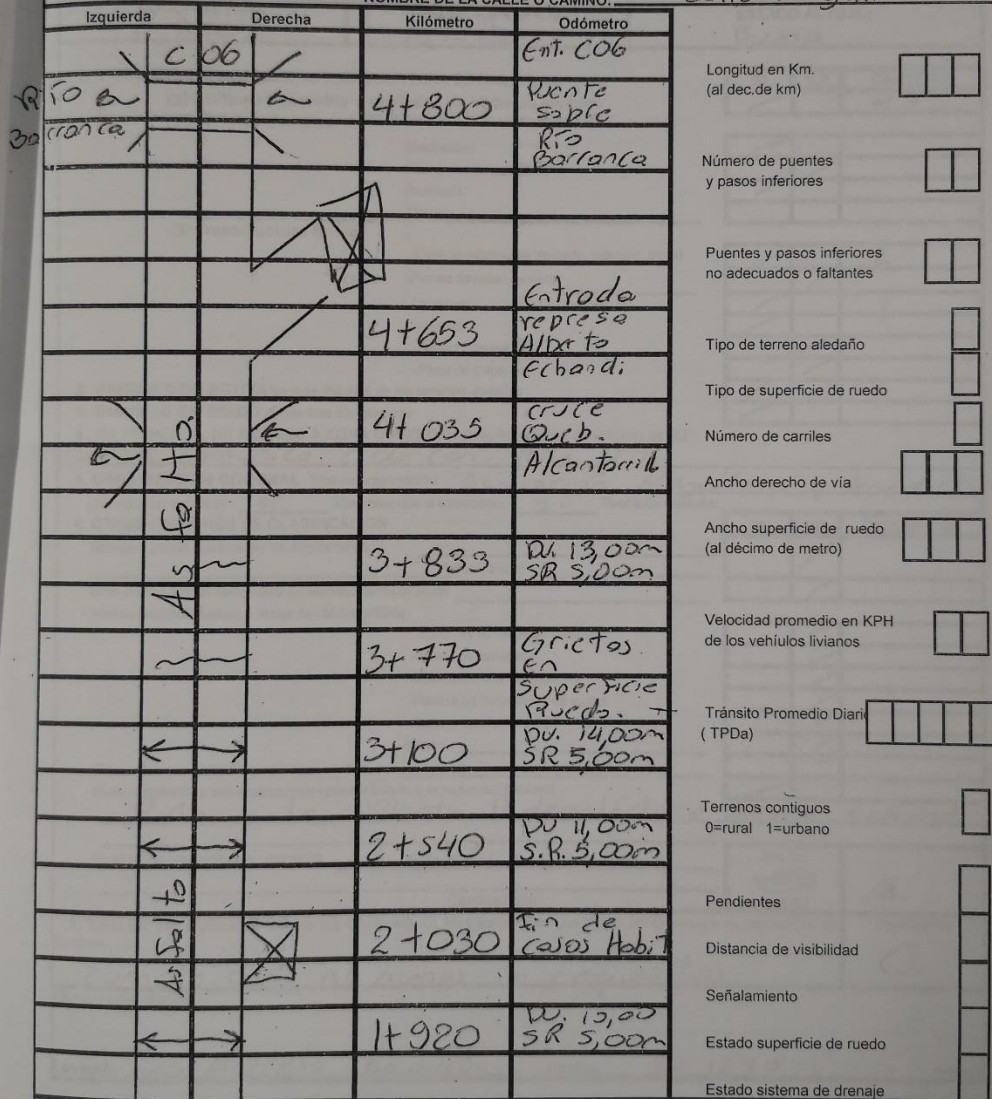 NOMBRE DE LA CALLE O CAMINO:
Izquierda Derecha Kilómetro Odómetro
C 06 Ent. C06
Río 4+800 Puente sobre
Barranca Río Barranca
Entrada
4+653 represa Alberto
Echandi
4+035 cruce Queb.
Alcantarill
Asfalto
3+833 DV. 13,00m
SR 5,00m
3+770 Grietas en
superficie Ruedo.
3+100 DV. 14,00m
SR 5,00m
2+540 DV 11,00m
S.R. 5,00m
Asfalto
2+030 Fin de
casas Habit
1+920
SR 5,00m
Longitud en Km.
(al dec.de km)
Número de puentes
y pasos inferiores
Puentes y pasos inferiores
no adecuados o faltantes
Tipo de terreno aledaño
Tipo de superficie de ruedo
Número de carriles
Ancho derecho de vía
Ancho superficie de ruedo
(al décimo de metro)
Velocidad promedio en KPH
de los vehíulos livianos
Tránsito Promedio Diari
( TPDa)
Terrenos contiguos
0=rural 1=urbano
Pendientes
Distancia de visibilidad
Señalamiento
Estado superficie de ruedo
Estado sistema de drenaje